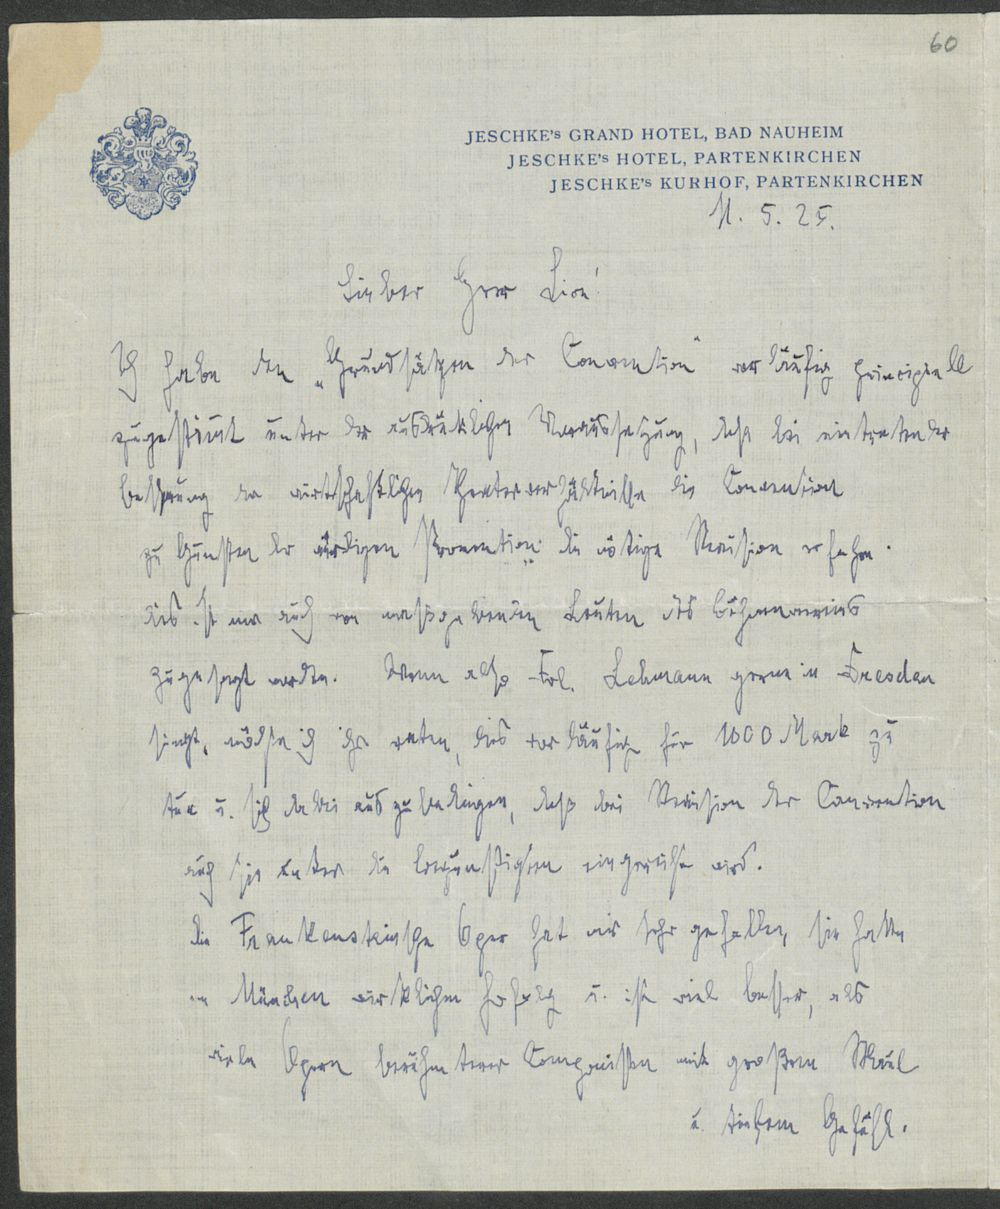 60
JESCHKE's GRAND HOTEL, BAD NAUHEIM
JESCHKE's HOTEL, PARTENKIRCHEN
JESCHKE's KURHOF, PARTENKIRCHEN
11. 5. 25.
Lieber Herr Lion!
Ich habe den „Grundsätzen der Convention" vorläufig principiell
zugestimmt unter der ausdrücklichen Voraussetzung, daß bei eintretender
Besserung der wirtschaftlichen Theaterverhältnisse die Convention
zu Gunsten der würdigen „Prominenten" die nötige Revision erfahre.
Dies ist mir auch von maßgebenden Leuten des Bühnenvereins
zugesagt worden. Wenn also Frl. Lehmann gerne in Dresden
singt, möchte ich ihr raten, dies vorläufig für 1000 Mark zu
tun u. sich dabei auszubedingen, daß bei Revision der Convention
auch sie unter die Begünstigten eingereiht wird.
Die Frankensteinsche Oper hat mir sehr gefallen, sie hatte
in München wirklichen Erfolg u. ist viel besser, als
viele Opern berühmterer Componisten mit großem Maul
u. tiefem Gefühl.